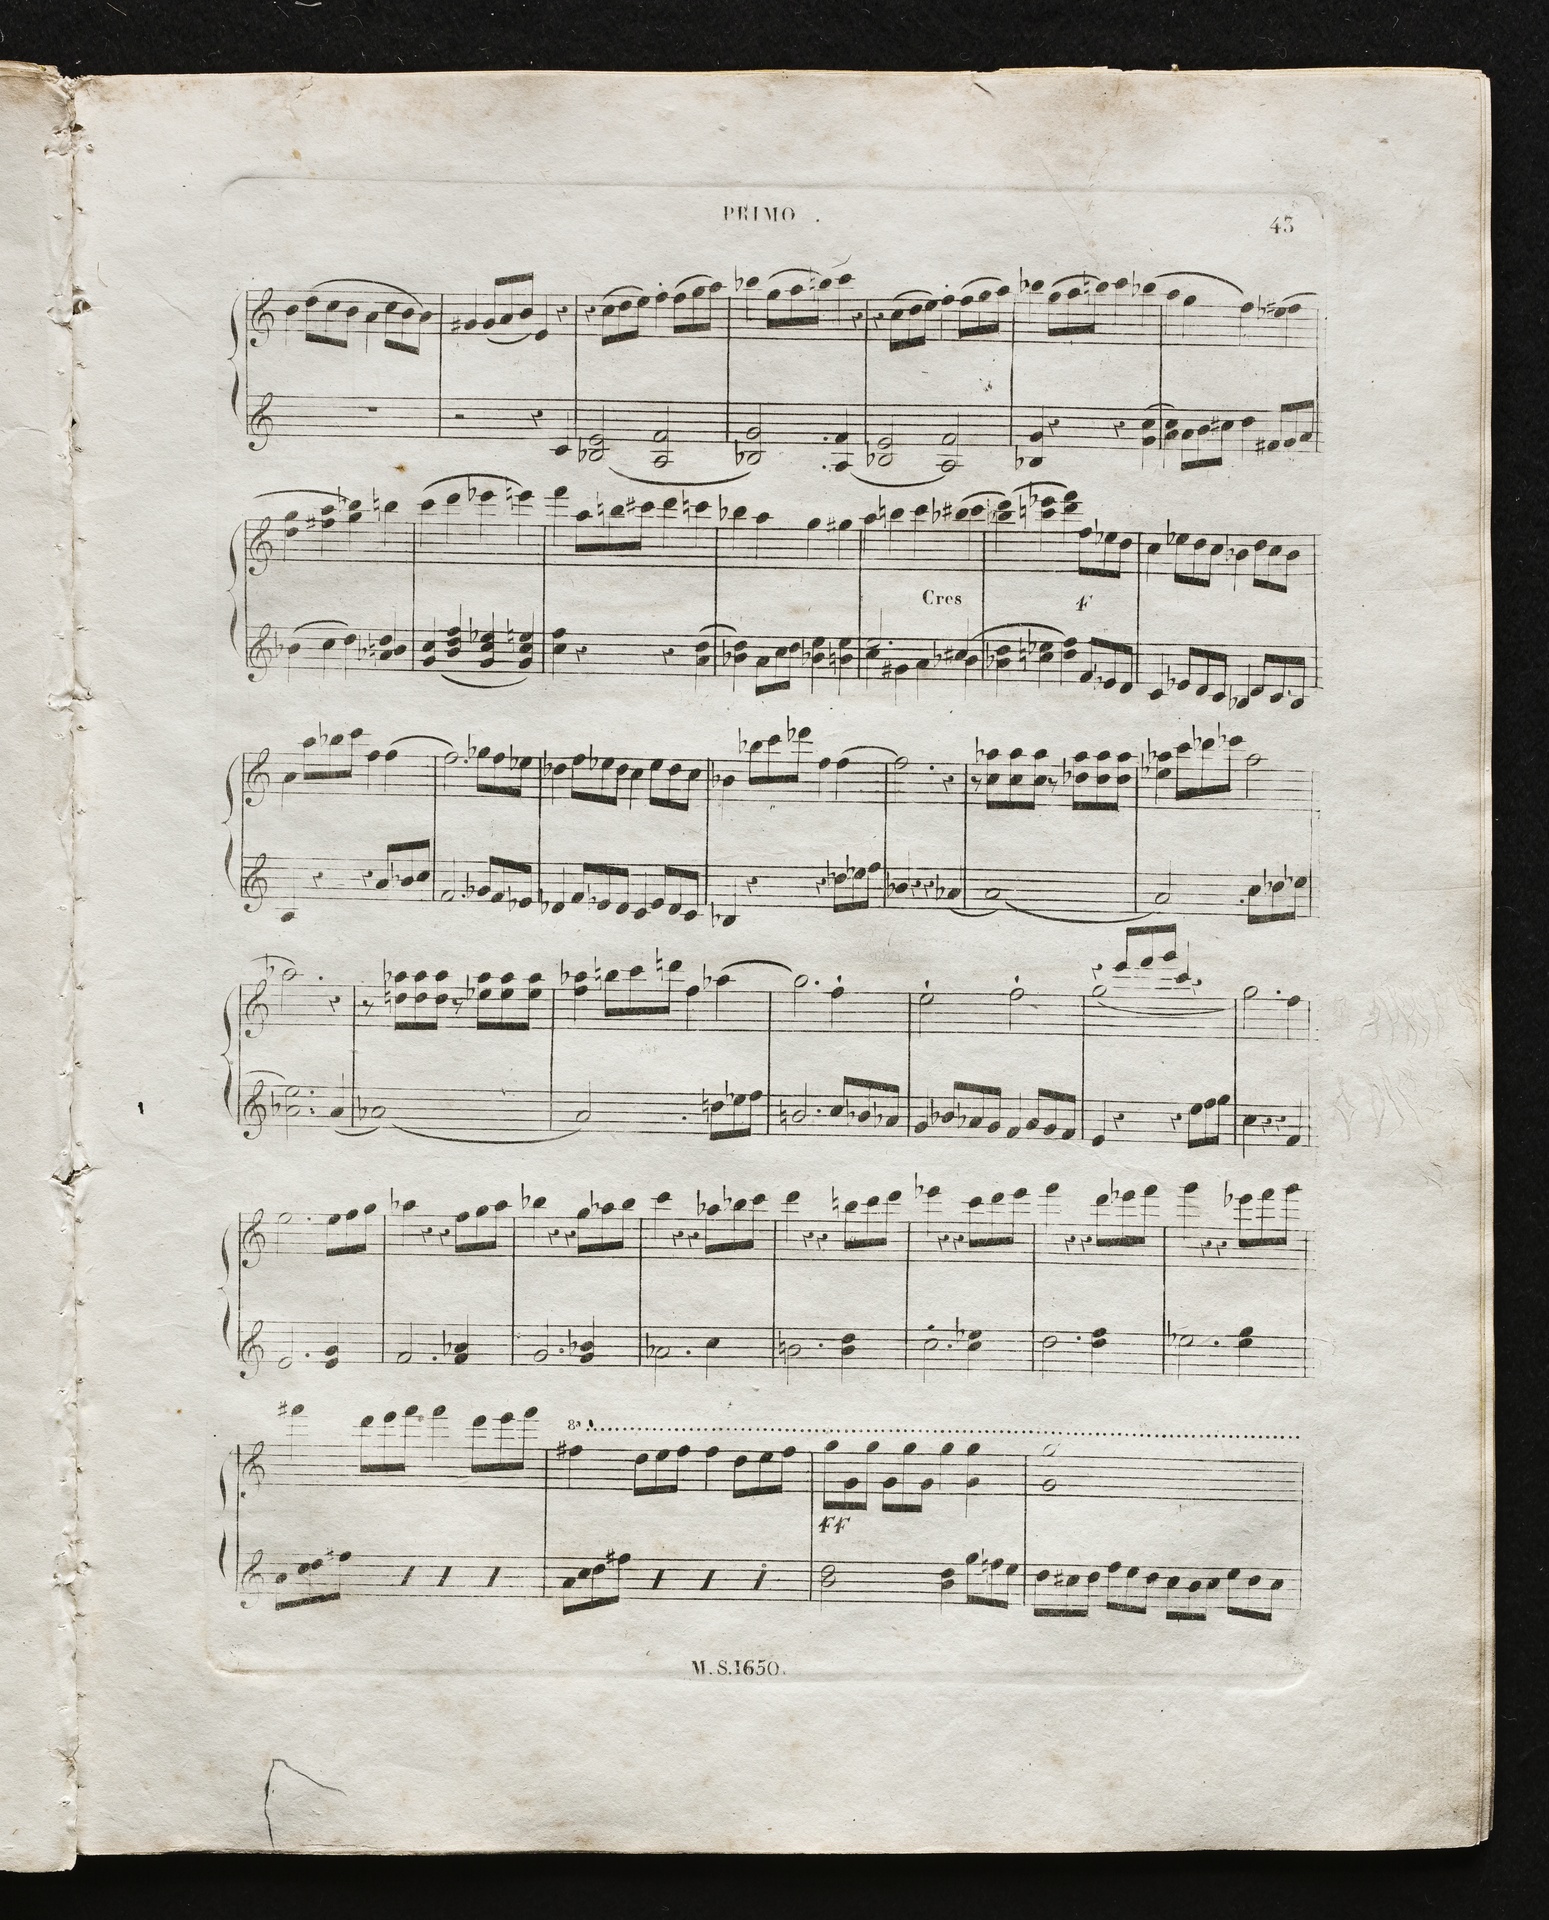 PRIMO .
43
Cres
F
8ª
FF
M.S.1650.